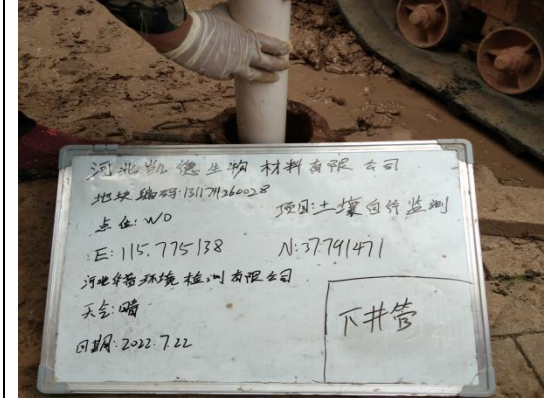 河北凯德生物材料有限公司
地块编码:1311711260028
点位: W0 项目:土壤自行监测
E: 115.775138 N: 37.791471
河北华普环境检测有限公司
天气: 晴
日期: 2022.7.22
下井管